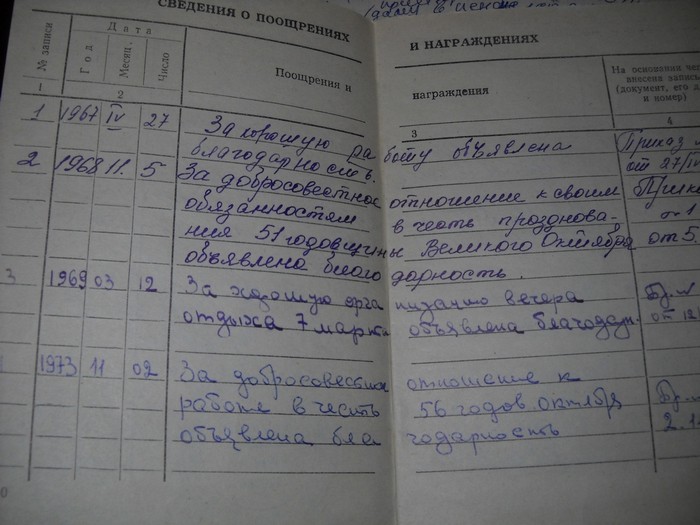 СВЕДЕНИЯ О ПООЩРЕНИЯХ И НАГРАЖДЕНИЯХ
№ записи Дата Поощрения и награждения На основании чего внесена запись (документ, его дата и номер)
Год Месяц Число
1 2 3 4
1 1967 IV 27 За хорошую работу объявлена Приказ
благодарность. от 27/IV
2 1968 11. 5 За добросовестное отношение к своим
обязанностям в честь празднова-
ния 51 годовщины Великого Октября от 5
объявлена благодарность.
3 1969 03 12 За хорошую организацию вечера
отдыха 7 марта объявлена благодарн. от 12
1973 11 02 За добросовестное отношение к
работе в честь 56 годов. октября
объявлена благодарность 2.1